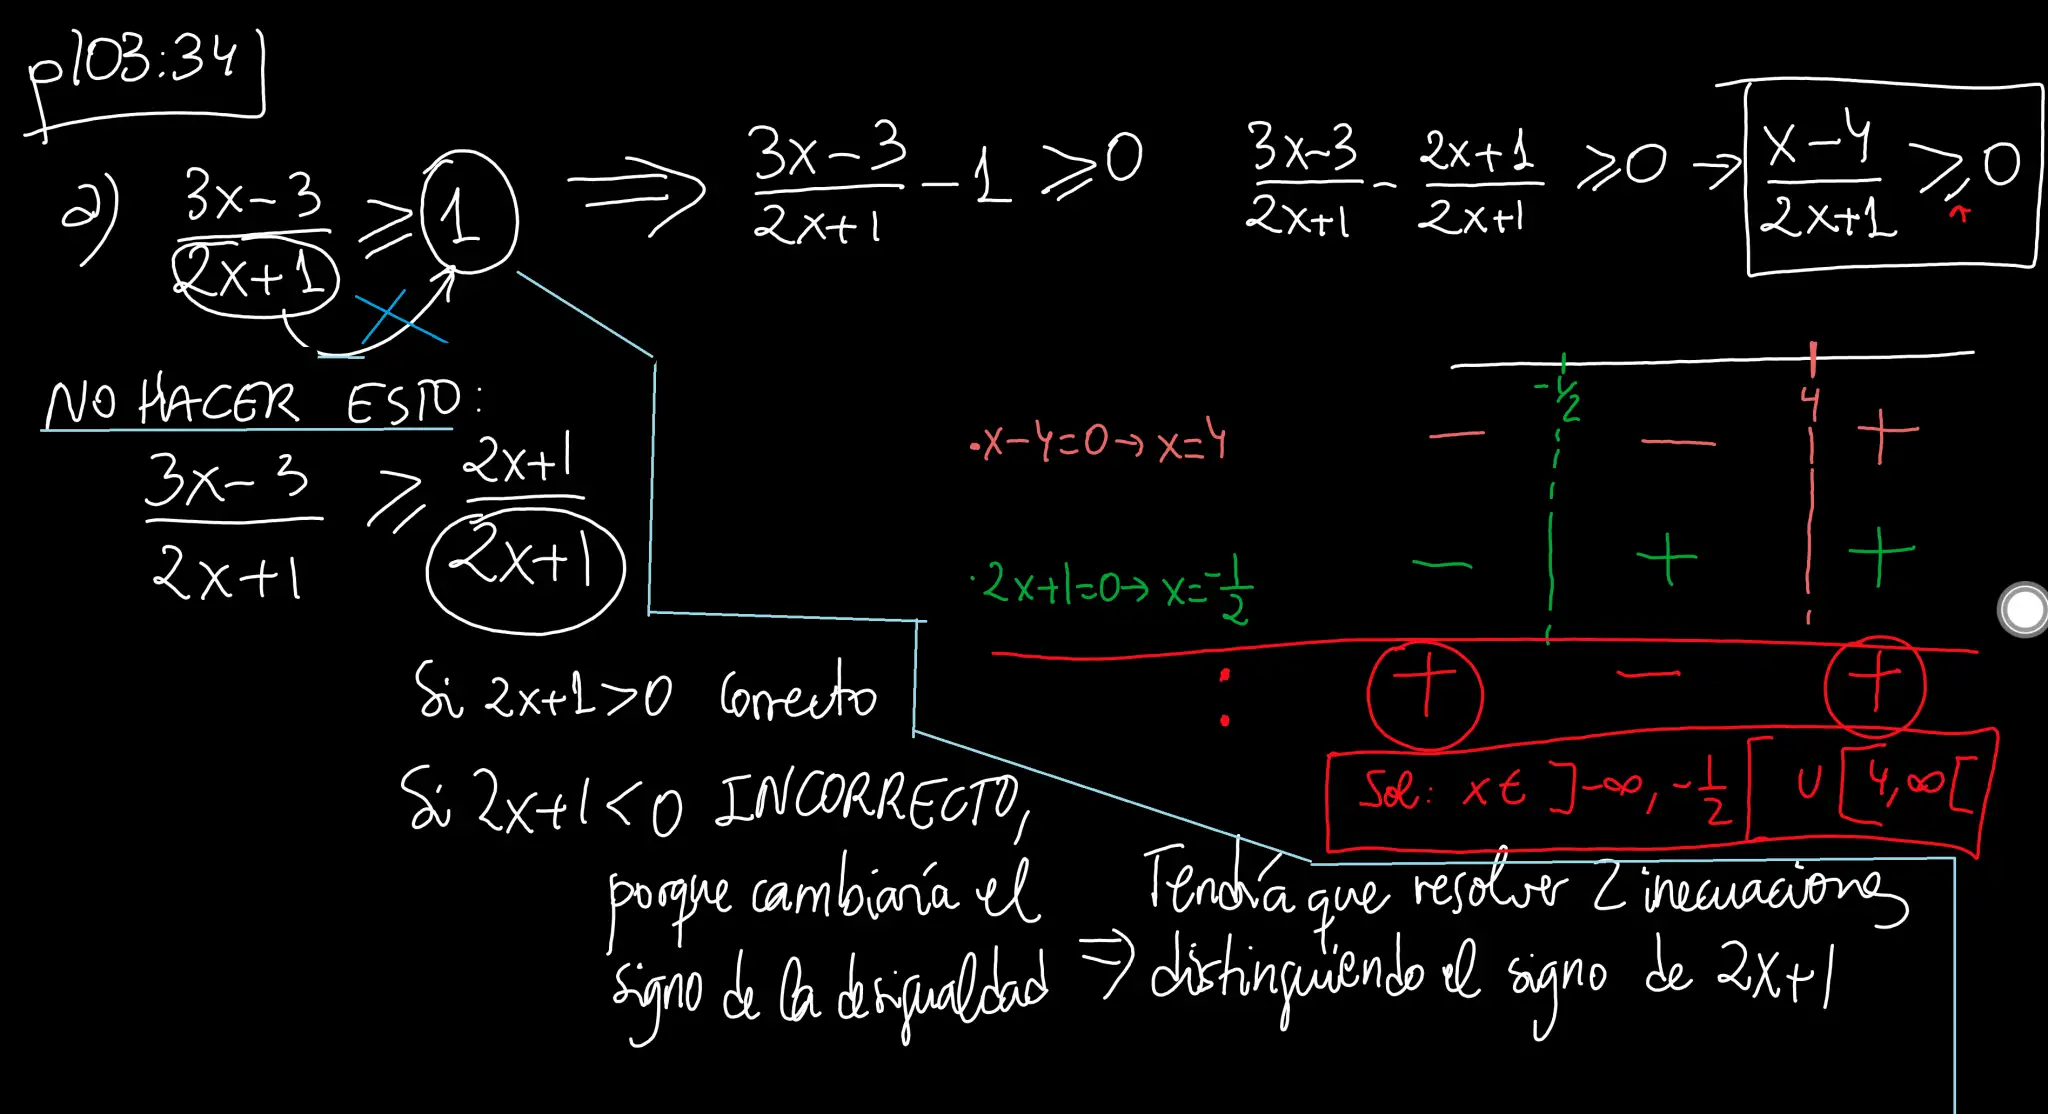 p103:34
a) (3x-3)/(2x+1) ⩾ 1 ⟹ (3x-3)/(2x+1) - 1 ⩾ 0 (3x-3)/(2x+1) - (2x+1)/(2x+1) ⩾ 0 → (x-4)/(2x+1) ⩾ 0
NO HACER ESTO:
(3x-3)/(2x+1) ⩾ (2x+1)/(2x+1)
Si 2x+1>0 correcto
Si 2x+1<0 INCORRECTO,
porque cambiaría el
signo de la desigualdad
⇒ Tendría que resolver 2 inecuaciones
distinguiendo el signo de 2x+1
-1/2 4
·x-4=0→x=4 - - +
·2x+1=0→x=-1/2 - + +
: + - +
Sol: x∈ ]-∞,-1/2[ ∪ [4,∞[